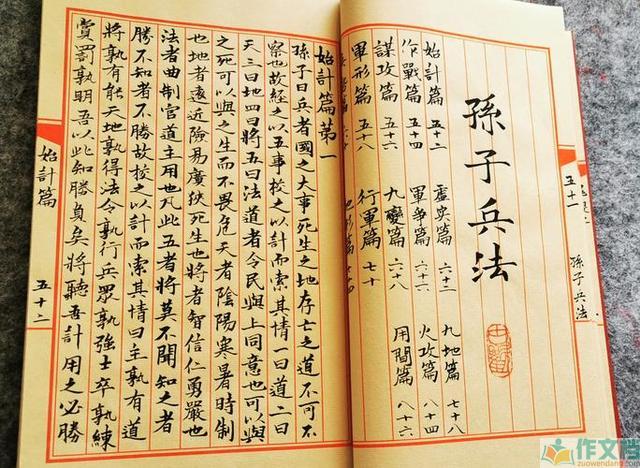 五十一
孫子兵法
孫子兵法
始計篇 五十二 虛實篇 六十二 九地篇 七十八
作戰篇 五十四 軍爭篇 火攻篇 八十四
謀攻篇 五十六 九變篇 六十八 用間篇 八十六
軍形篇 五十八 行軍篇 七十
始計篇第一
孫子曰兵者國之大事死生之地存亡之道不可不
察也故經之以五事校之以計而索其情一曰道二曰
天三曰地四曰將五曰法道者令民與上同意也可以與
之死可以與之生而不畏危天者陰陽寒暑時制
也地者遠近險易廣狹死生也將者智信仁勇嚴也
法者曲制官道主用也凡此五者將莫不聞知之者
勝不知者不勝故校之以計而索其情曰主孰有道
將孰有能天地孰得法令孰行兵眾孰強士卒孰練
賞罰孰明吾以此知勝負矣將聽吾計用之必勝
始計篇
五十二
作文档
zuowendang.com